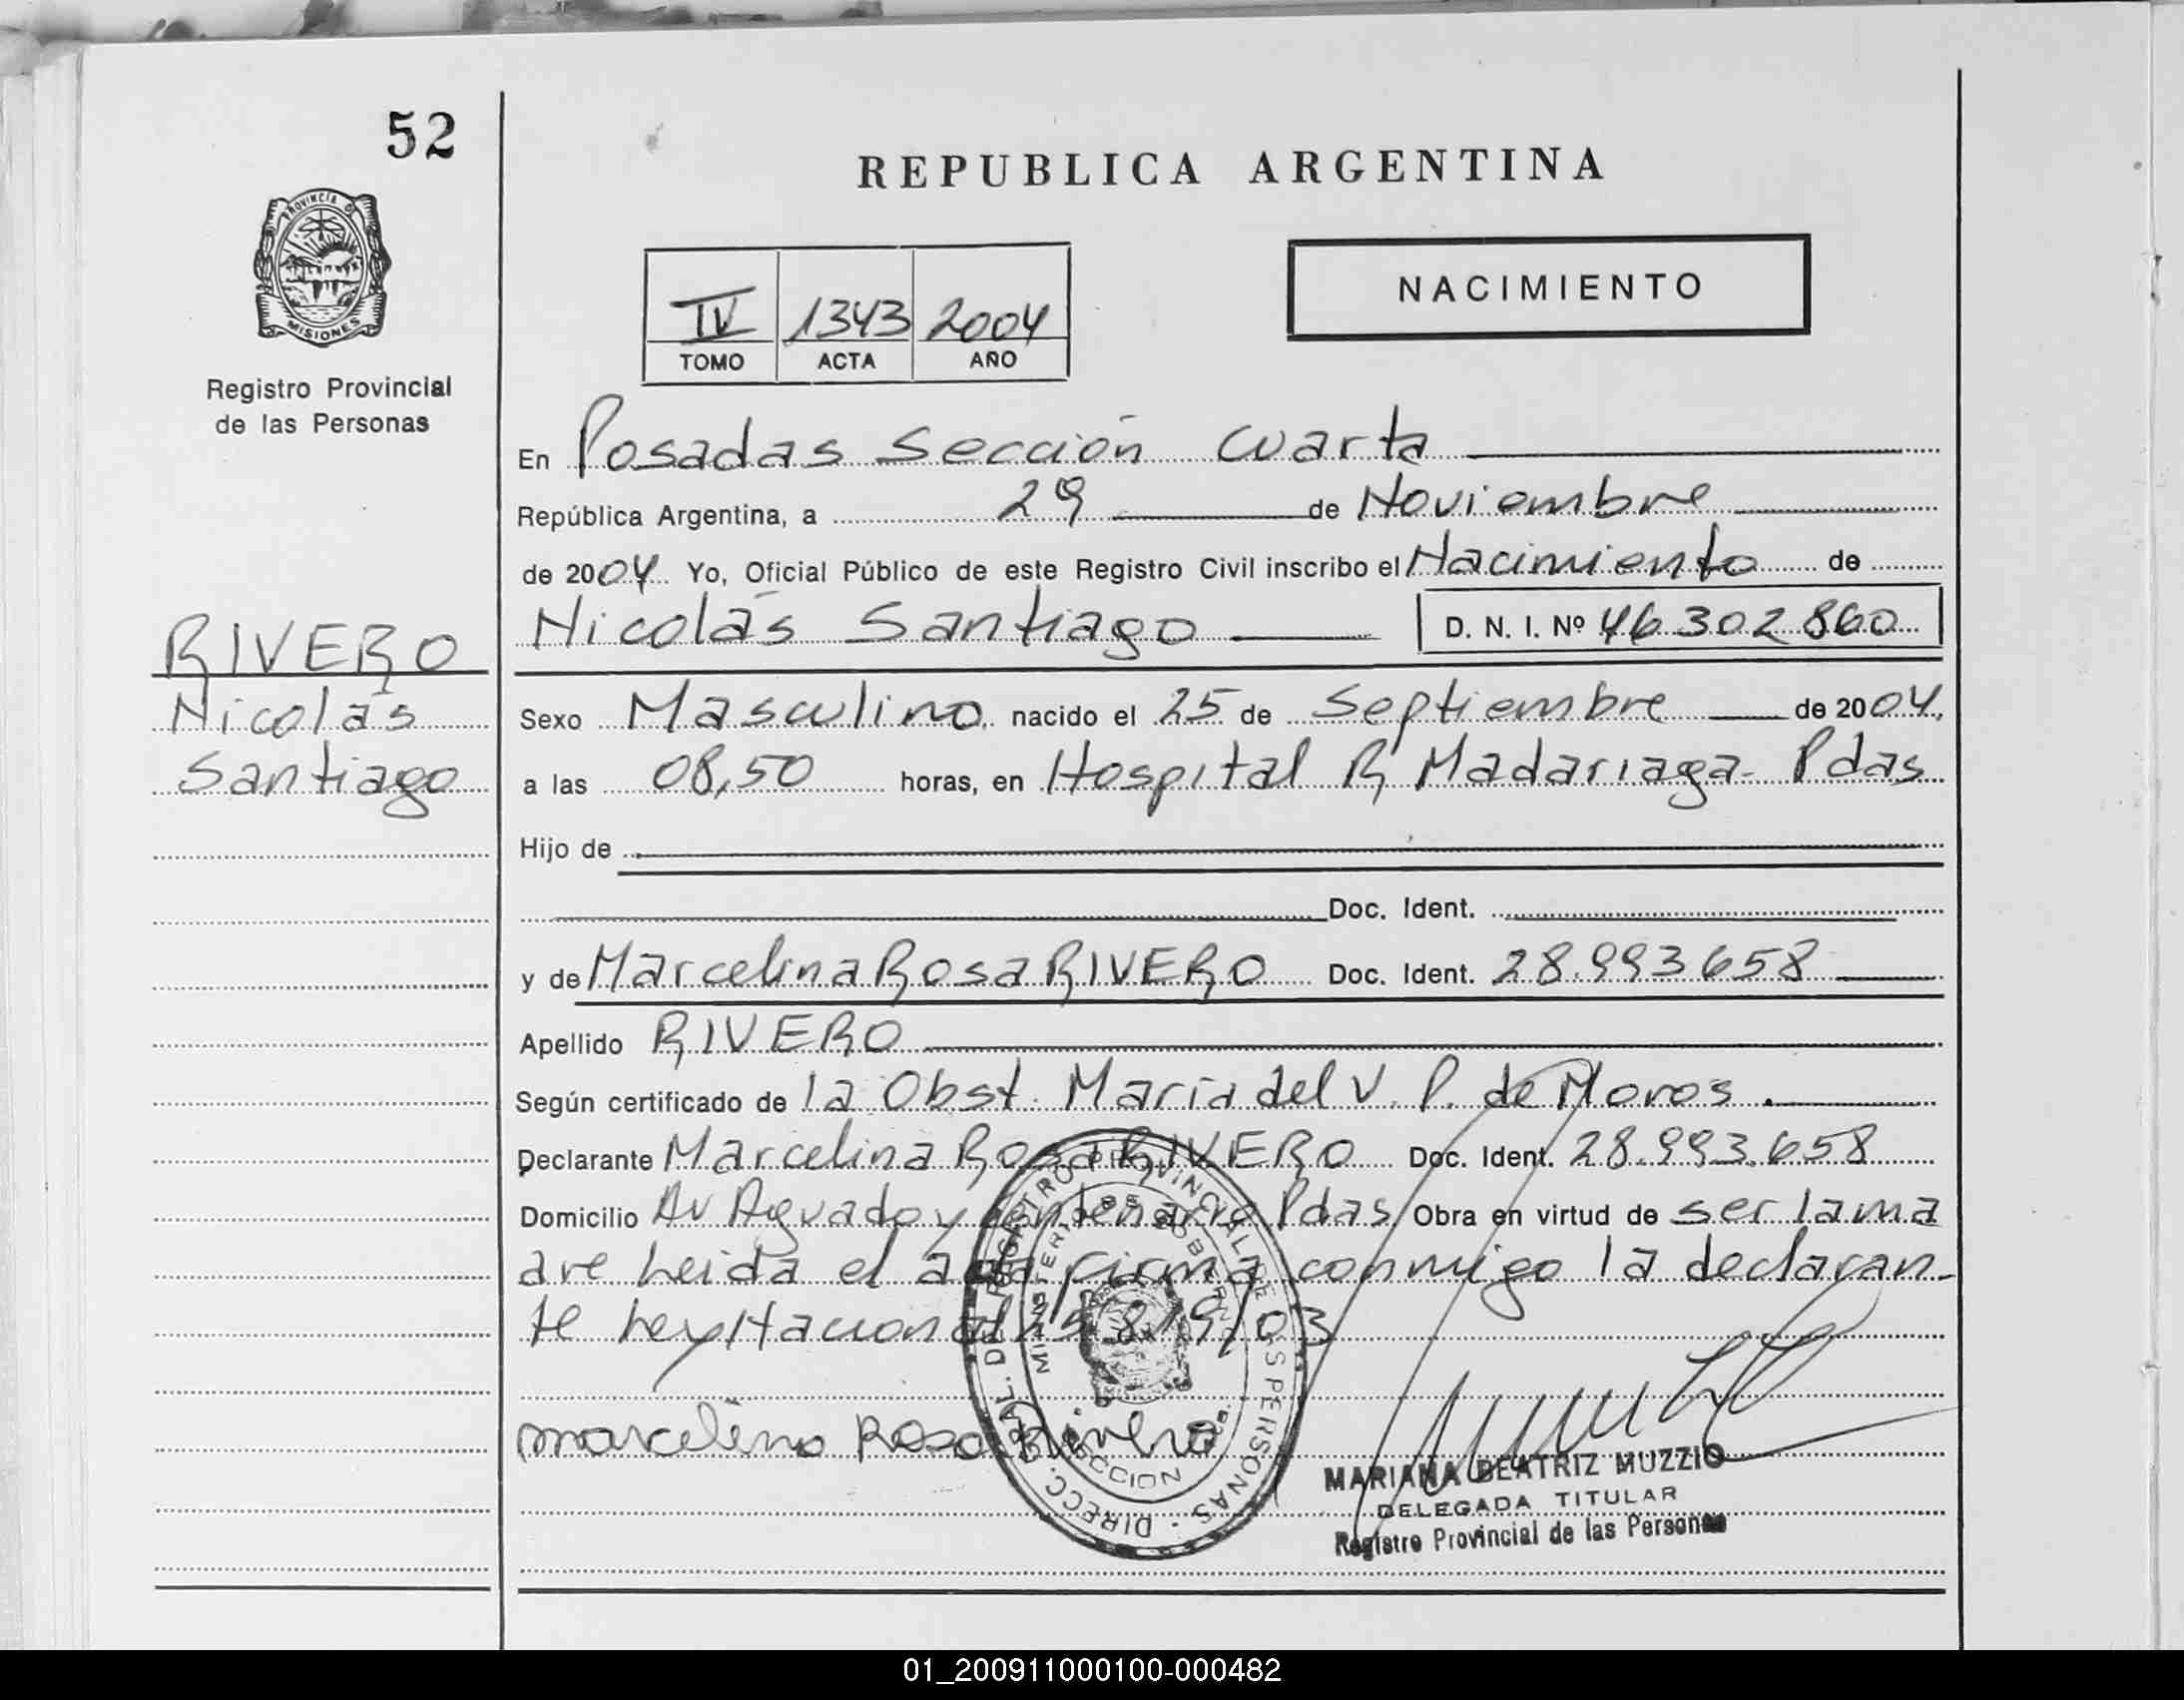 52
REPUBLICA ARGENTINA
PROVINCIA DE
MISIONES
Registro Provincial
de las Personas
IV 1343 2004
TOMO ACTA AÑO
NACIMIENTO
En Posadas Sección Cuarta
República Argentina, a 29 de Noviembre
de 2004 Yo, Oficial Público de este Registro Civil inscribo el Nacimiento de
Nicolás Santiago D. N. I. Nº 46302860
RIVERO
Nicolás
Santiago
Sexo Masculino nacido el 25 de Septiembre de 2004.
a las 08,50 horas, en Hospital R Madariaga - Pdas
Hijo de
Doc. Ident.
y de Marcelina Rosa RIVERO Doc. Ident. 28.993658
Apellido RIVERO
Según certificado de la Obst. María del V. P. de Moros.
Declarante Marcelina Rosa RIVERO Doc. Ident. 28.993.658
Domicilio Av Aguado y Centenario Pdas Obra en virtud de ser la ma
dre Leida el acta firma conmigo la declaran-
te Ley Nacional 25819/03
marcelina Rosa Rivero
DIRECC. GRAL. DEL REGISTRO PROVINCIAL DE LAS PERSONAS
MINISTERIO DE GOBIERNO
MARIANA BEATRIZ MUZZIO
DELEGADA TITULAR
Registro Provincial de las Personas
01_200911000100-000482